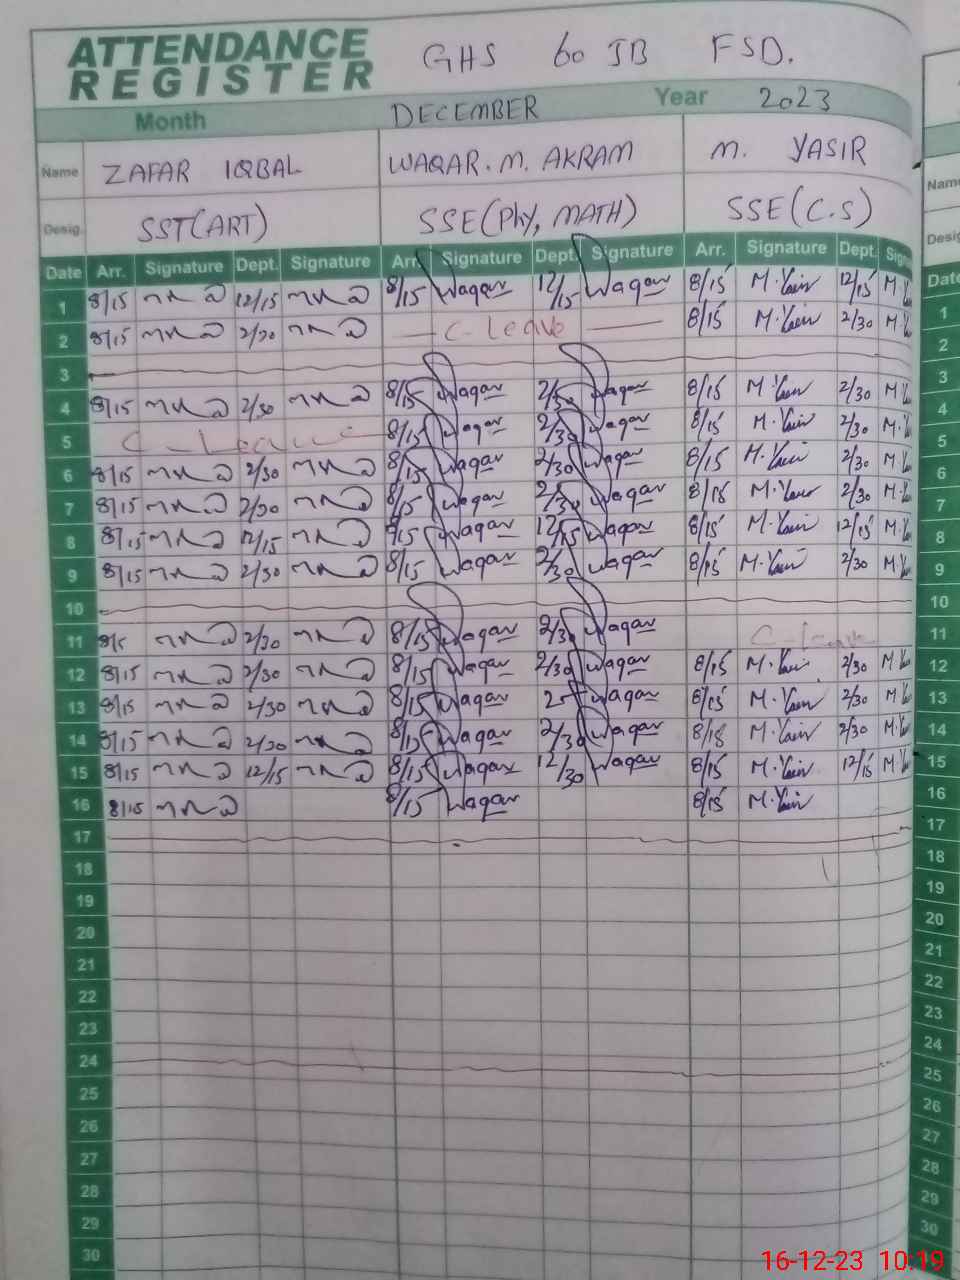 ATTENDANCE REGISTER GHS 60 JB FSD.
Month DECEMBER Year 2023
Name ZAFAR IQBAL WAQAR. M. AKRAM M. YASIR
Name
Desig. SST(ART) SSE(Phy, MATH) SSE(C.S)
Date Arr. Signature Dept. Signature Arr. Signature Dept. Signature Arr. Signature Dept.
1 8/15 12/15 8/15 Waqar 12/15 Waqar 8/15 M. 12/15 M.
2 8/15 2/30 C-Leave 8/15 M. 2/30 M.
3
4 8/15 2/30 8/15 Waqar Waqar 8/15 M. 2/30 M.
5 C-Leave 8/15 Waqar 2/30 Waqar 8/15 M. 2/30 M.
6 8/15 2/30 8/15 Waqar 2/30 Waqar 8/15 M. 2/30 M.
7 8/15 2/30 8/15 Waqar 2/30 Waqar 8/15 M. 2/30 M.
8 8/15 12/15 Waqar 12/15 Waqar 8/15 M. 12/15 M.
9 8/15 2/30 8/15 Waqar 2/30 Waqar 8/15 M. 2/30 M.
10
11 2/30 8/15 Waqar 2/30 Waqar C-leave
12 8/15 2/30 8/15 Waqar 2/30 Waqar 8/15 M. 2/30 M.
13 8/15 2/30 8/15 Waqar Waqar 8/15 M. 2/30 M.
14 8/15 2/30 8/15 Waqar 2/30 Waqar M. 2/30 M.
15 8/15 12/15 8/15 Waqar 12/30 Waqar 8/15 M. 12/15 M.
16 8/15 8/15 Waqar 8/15 M.
17
18
19
20
21
22
23
24
25
26
27
28
29
30
Date
1
2
3
4
5
6
7
8
9
10
11
12
13
14
15
16
17
18
19
20
21
22
23
24
25
26
27
28
29
30
16-12-23 10:19